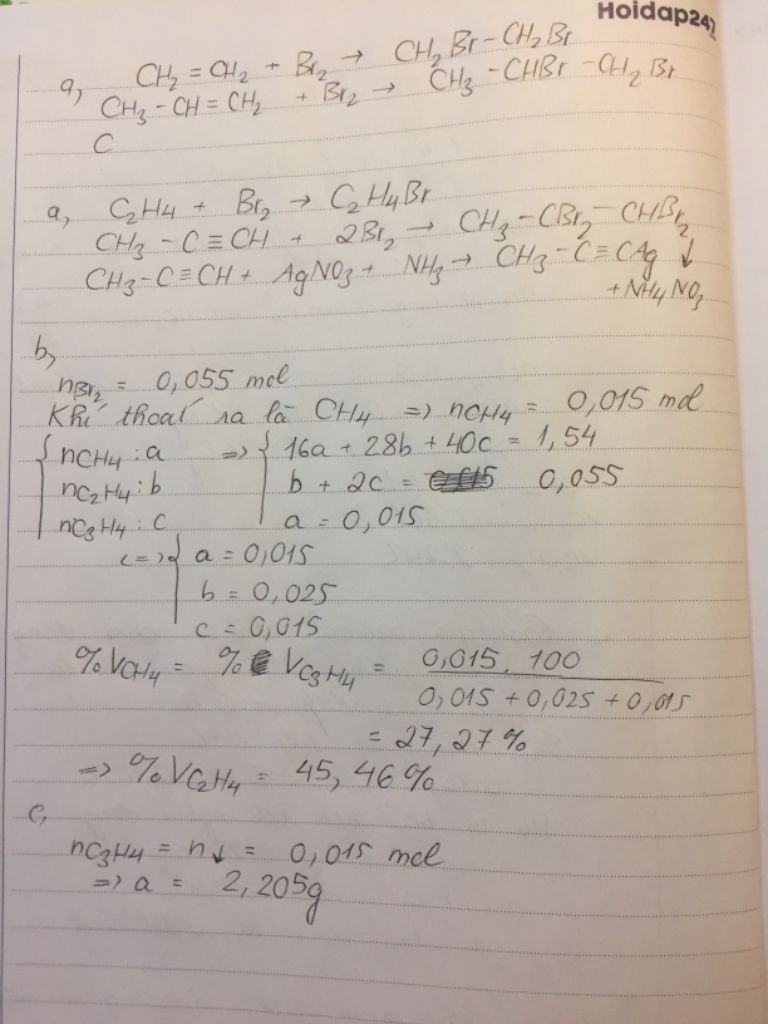 Hoidap247
a, CH2 = CH2 + Br2 → CH2Br-CH2Br
CH3-CH=CH2 + Br2 → CH3-CHBr-CH2Br
C
a, C2H4 + Br2 → C2H4Br
CH3-C≡CH + 2Br2 → CH3-CBr2-CHBr2
CH3-C≡CH + AgNO3 + NH3 → CH3-C≡CAg ↓
+ NH4NO3
b,
nBr2 = 0,055 mol
Khí thoát ra là CH4 => nCH4 = 0,015 mol
{ nCH4 : a => { 16a + 28b + 40c = 1,54
nC2H4 : b b + 2c = 0,055
nC3H4 : c a = 0,015
<=> { a = 0,015
b = 0,025
c = 0,015
%VCH4 = %VC3H4 = 0,015. 100
0,015 + 0,025 + 0,015
= 27,27%
=> %VC2H4 = 45,46%
c,
nC3H4 = n↓ = 0,015 mol
=> a = 2,205g